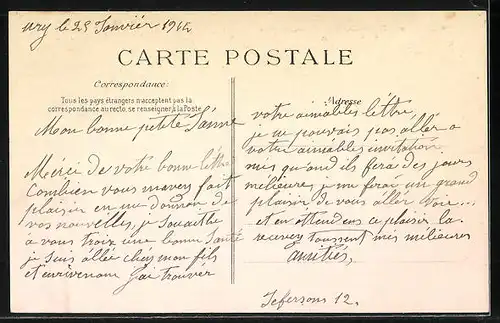 ury le 25 Janviér 1912
CARTE POSTALE
Correspondance:
Tous les pays étrangers n'acceptent pas la
correspondance au recto, se renseigner à la Poste
Adresse
Mon bonne petite
Mérci de votre bonn léttre
Combien vous mavez fait
plaisir en me donnon de
vos nouvelles, je Souaitte
a vous troix une bonn Santé
je suis állée chez mon fils
et enrivenom J'ai trouver
votre aimables léttre,
je ne pouvais pas allér a
votre aimables invitation
mis quand ils fèra des jours
mélieures, je me ferai un grand
plaisir de vous aller Voir...
et en attendens ce plaisir la
recevez toussent mis mélieures
amitiés,
Jefersons 12.